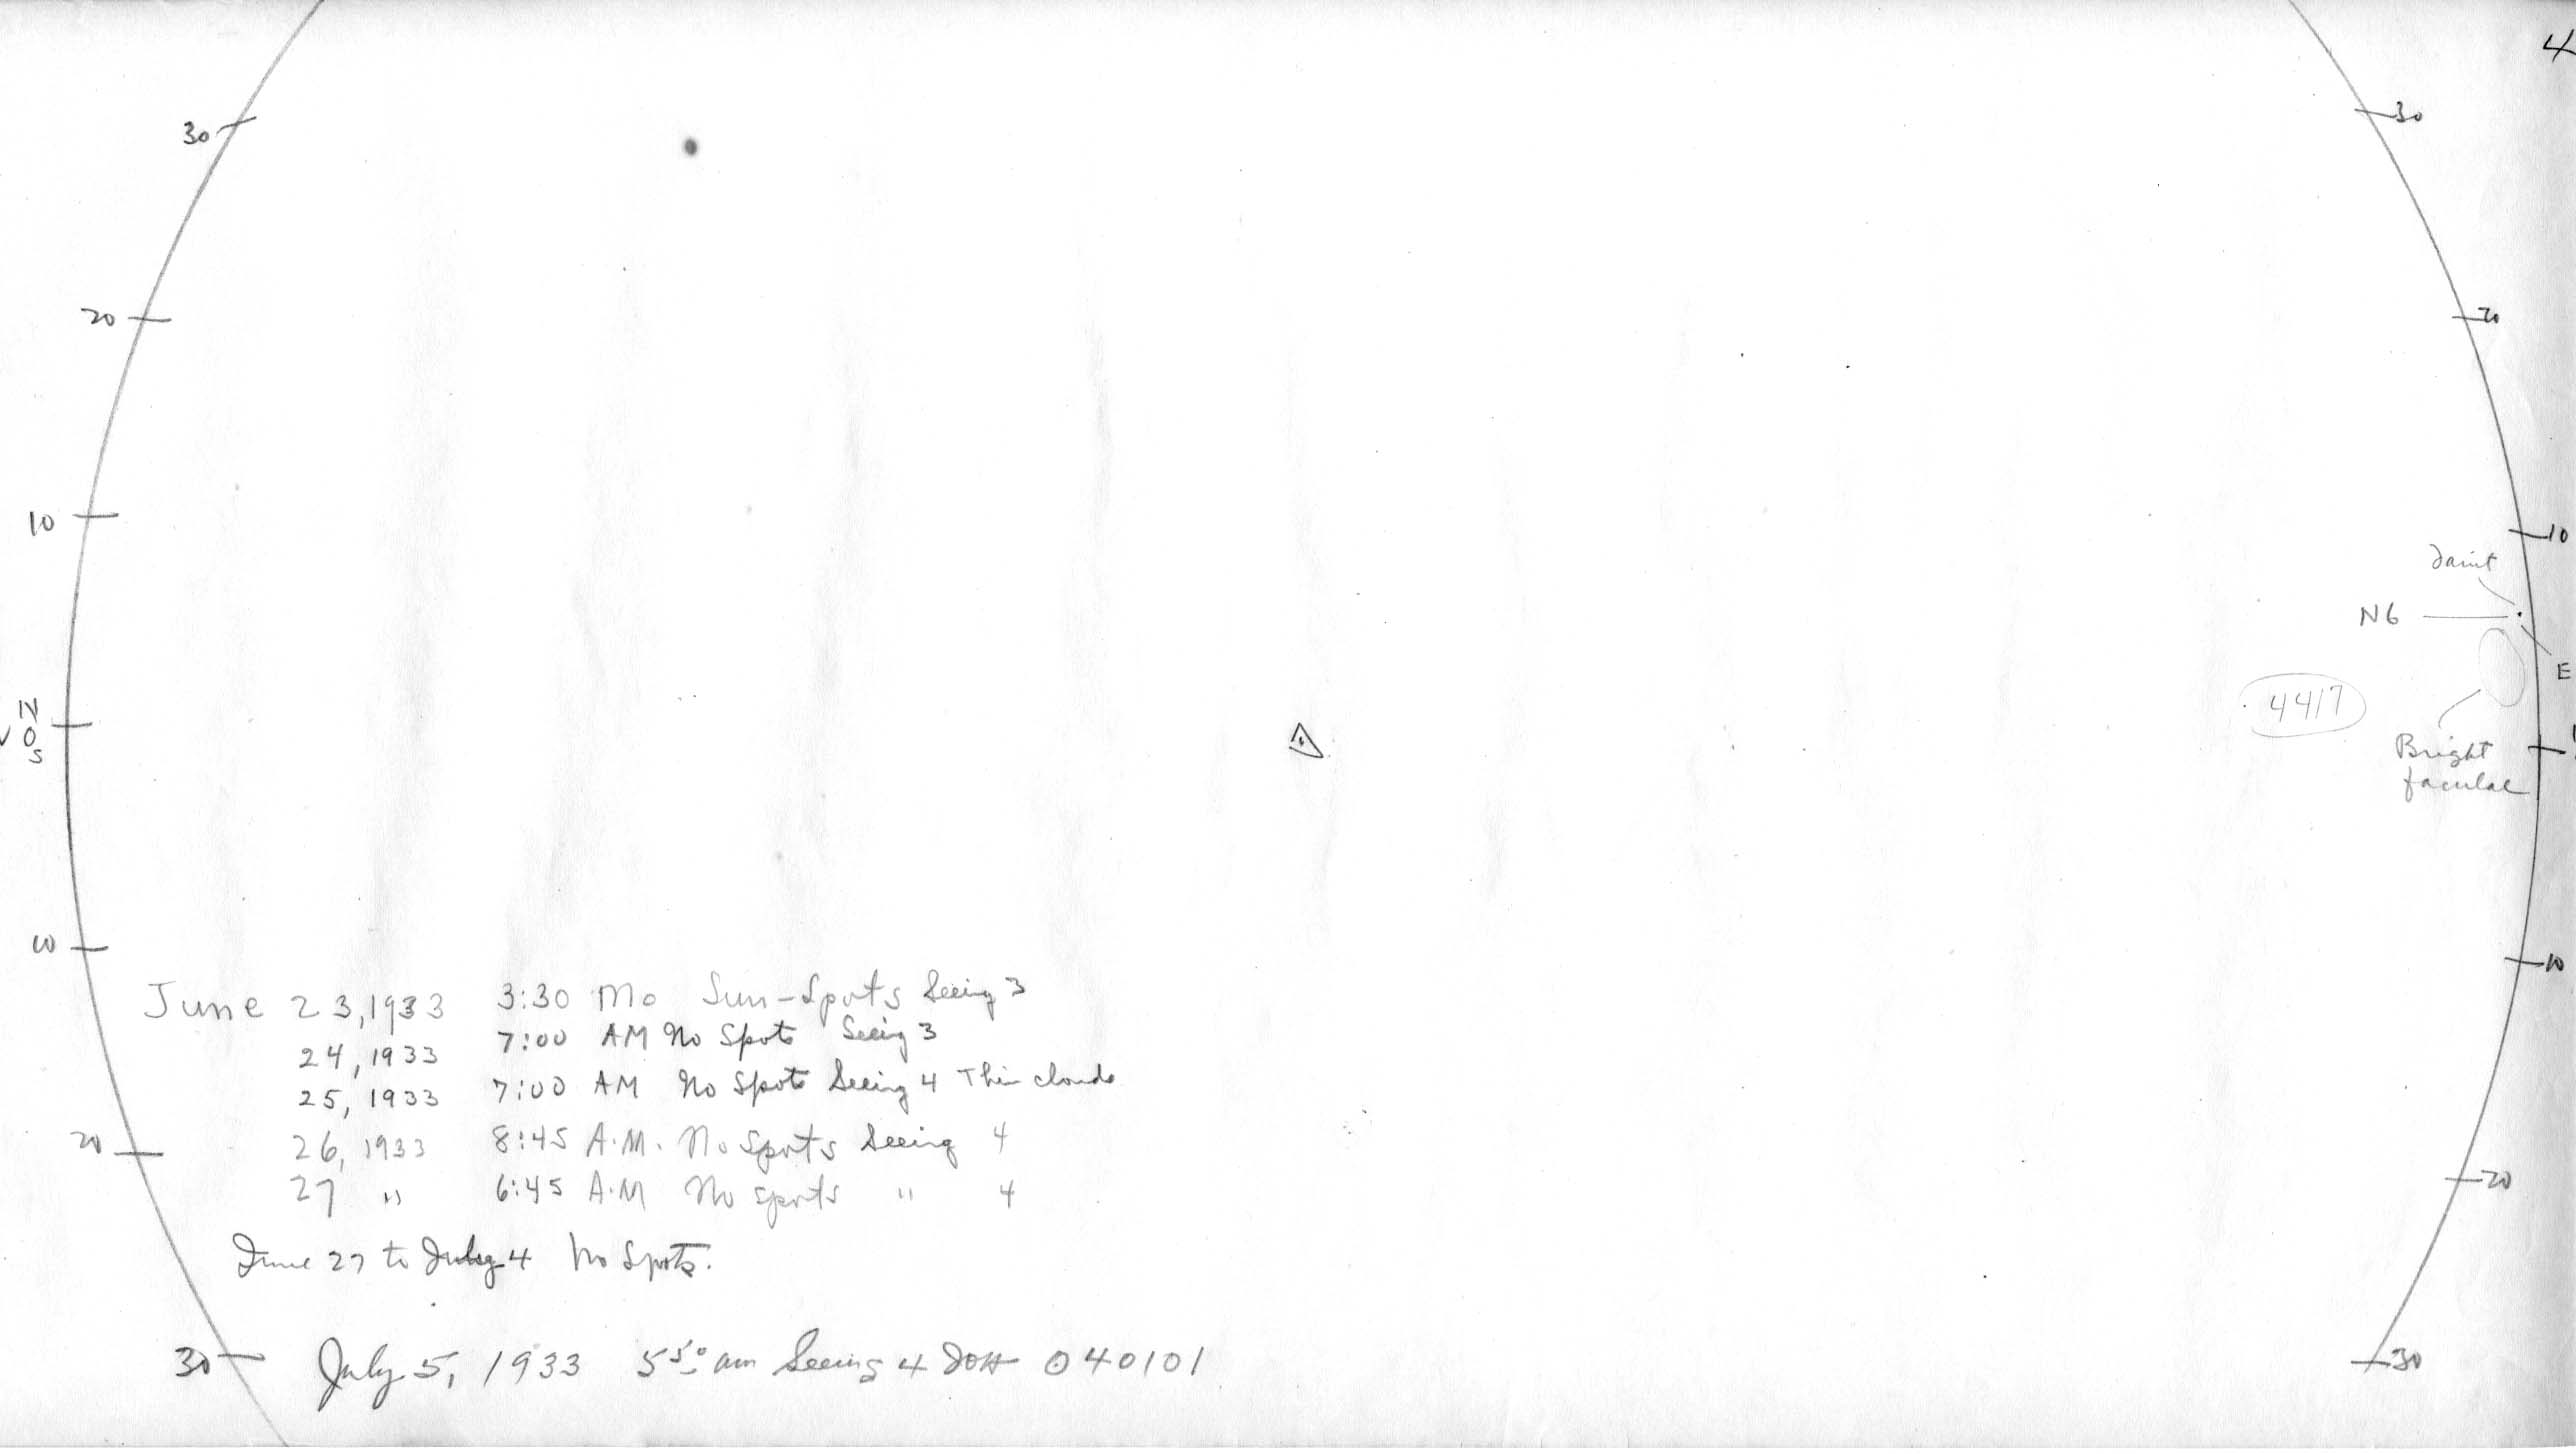 4
30
30
20
20
10
10
faint
N6
E
4417
N
0
S
Bright
faculae
10
10
June 23, 1933 3:30 No Sun-Spots Seeing 3
24, 1933 7:00 AM No Spots Seeing 3
25, 1933 7:00 AM No Spots Seeing 4 Thin clouds
20
26, 1933 8:45 A.M. No Spots Seeing 4
27 " 6:45 A.M No spots " 4
20
June 27 to July 4 No Spots.
30
July 5, 1933 5 50 am Seeing 4 040101
30